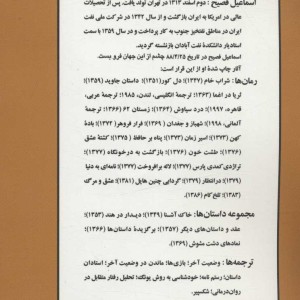 اسماعیل فصیح: دوم اسفند ۱۳۱۳ در تهران تولد یافت. پس از تحصیلات
عالی در امریکا به ایران بازگشت و از سال ۱۳۴۲ در شرکت ملی نفت
ایران در مناطق نفتخیز جنوب به کار پرداخت و در سال ۱۳۵۹ با سمت
استادیار دانشکدهٔ نفت آبادان بازنشسته گردید.
اسماعیل فصیح در تاریخ ۸۸/۴/۲۵ چشم از این جهان فرو بست.
آثار چاپ شدهٔ او از این قرار است:
رمان‌ها: شراب خام (۱۳۴۷)؛ دل کور (۱۳۵۱)؛ داستان جاوید (۱۳۵۹)؛
ثریا در اغما (۱۳۶۳)؛ ترجمهٔ انگلیسی، لندن، ۱۹۸۵؛ ترجمهٔ عربی،
قاهره، ۱۹۹۷)؛ درد سیاوش (۱۳۶۴)؛ زمستان ۶۲ (۱۳۶۶)؛ ترجمهٔ
آلمانی، ۱۹۹۸)؛ شهباز و جغدان (۱۳۶۹)؛ فرار فروهر (۱۳۷۲)؛ بادهٔ
کهن (۱۳۷۳)؛ اسیر زمان (۱۳۷۳)؛ پناه بر حافظ (۱۳۷۵)؛ کشتهٔ عشق
(۱۳۷۶)؛ طشت خون (۱۳۷۶)؛ بازگشت به درخونگاه (۱۳۷۷)؛
تراژدی/کمدی پارس (۱۳۷۷)؛ لاله برافروخت (۱۳۷۷)؛ نامه‌ای به دنیا
(۱۳۷۹)؛ در انتظار (۱۳۷۹)؛ گردابی چنین هایل (۱۳۸۱)؛ عشق و مرگ
(۱۳۸۳)؛ تلخ‌کام (۱۳۸۶).
مجموعه داستان‌ها: خاک آشنا (۱۳۴۹)؛ دیدار در هند (۱۳۵۳)؛
عقد و داستان‌های دیگر (۱۳۵۷)؛ برگزیدهٔ داستان‌ها (۱۳۶۶)؛
نمادهای دشت مشوش (۱۳۶۹).
ترجمه‌ها: وضعیت آخر؛ بازی‌ها؛ ماندن در وضعیت آخر؛ استادان
داستان؛ رستم نامه؛ خودشناسی به روش یونگ؛ تحلیل رفتار متقابل در
روان‌درمانی؛ شکسپیر.